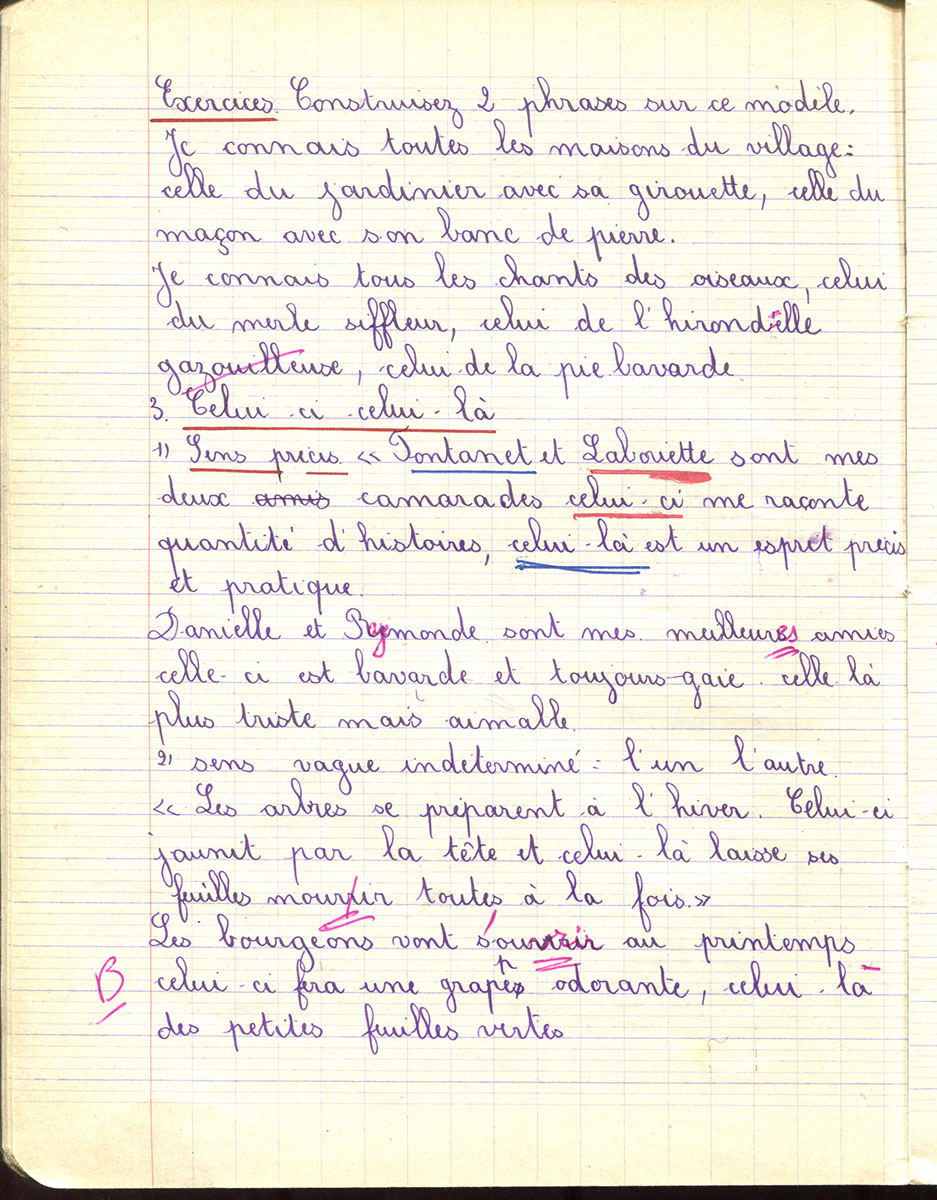 Exercices Construisez 2 phrases sur ce modèle.
Je connais toutes les maisons du village :
celle du jardinier avec sa girouette, celle du
maçon avec son banc de pierre.
Je connais tous les chants des oiseaux, celui
du merle siffleur, celui de l'hirondelle
gazouilleuse, celui de la pie bavarde
3. Celui-ci celui-là
1) Sens précis « Fontanet et Labouette sont mes
deux amis camarades celui-ci me raconte
quantité d'histoires, celui-là est un espret précis
et pratique.
Danielle et Rymonde sont mes meilleures amies
celle-ci est bavarde et toujours gaie. celle là
plus triste mais aimable.
2) sens vague indéterminé : l'un l'autre.
« Les arbres se préparent à l'hiver. Celui-ci
jaunit par la tête et celui-là laisse ses
feuilles mourrir toutes à la fois. »
Les bourgeons vont s'ouvrir au printemps
B celui-ci fera une grappe odorante, celui-là
des petites feuilles vertes